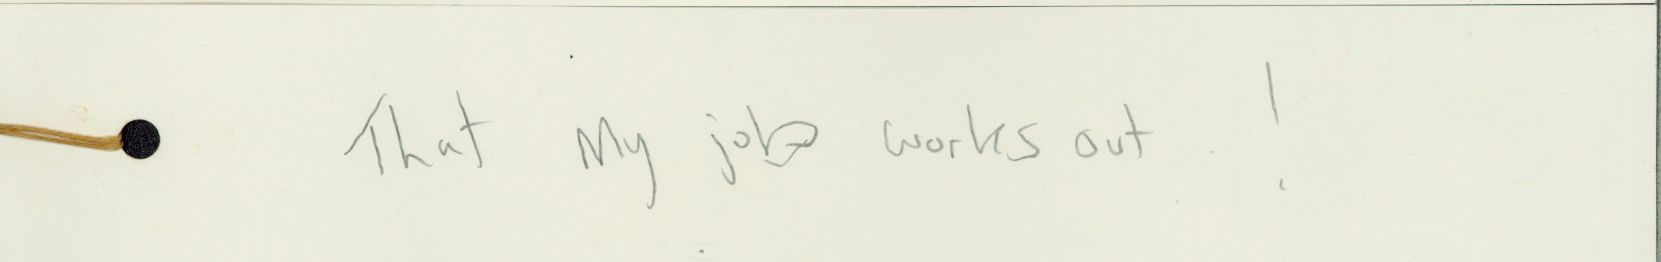 That My job works out !